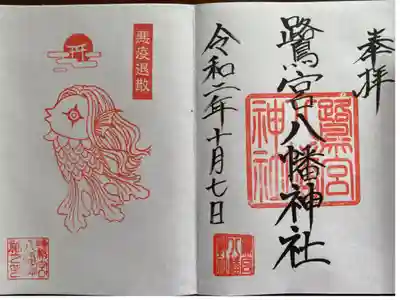 奉拝
鷺宮八幡神社
鷺宮
神社
令和二年十月七日
悪疫退散